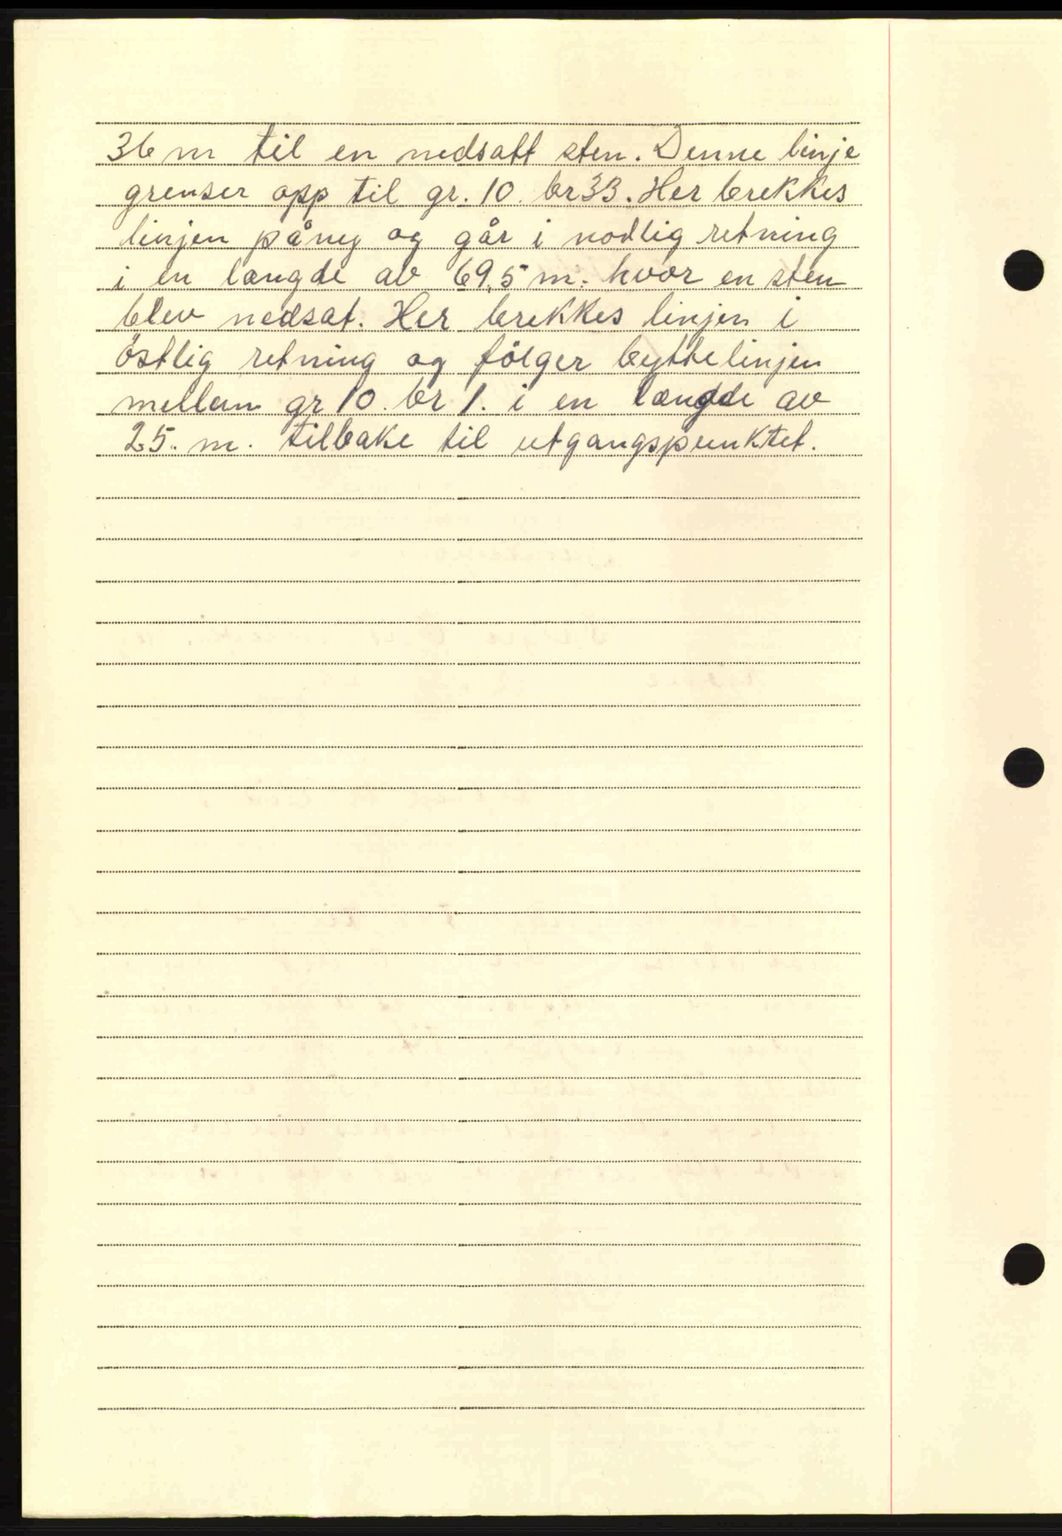 36 m til en nedsatt sten. Denne linje
grenser opp til gr. 10. br 33. Her brekkes
linjen påny og går i nodlig retning
i en længde av 69,5 m. hvor en sten
blev nedsat. Her brekkes linjen i
östlig retning og følger byttelinjen
mellem gr 10. br 1. i en længde av
25. m. tilbake til utgangspunktet.